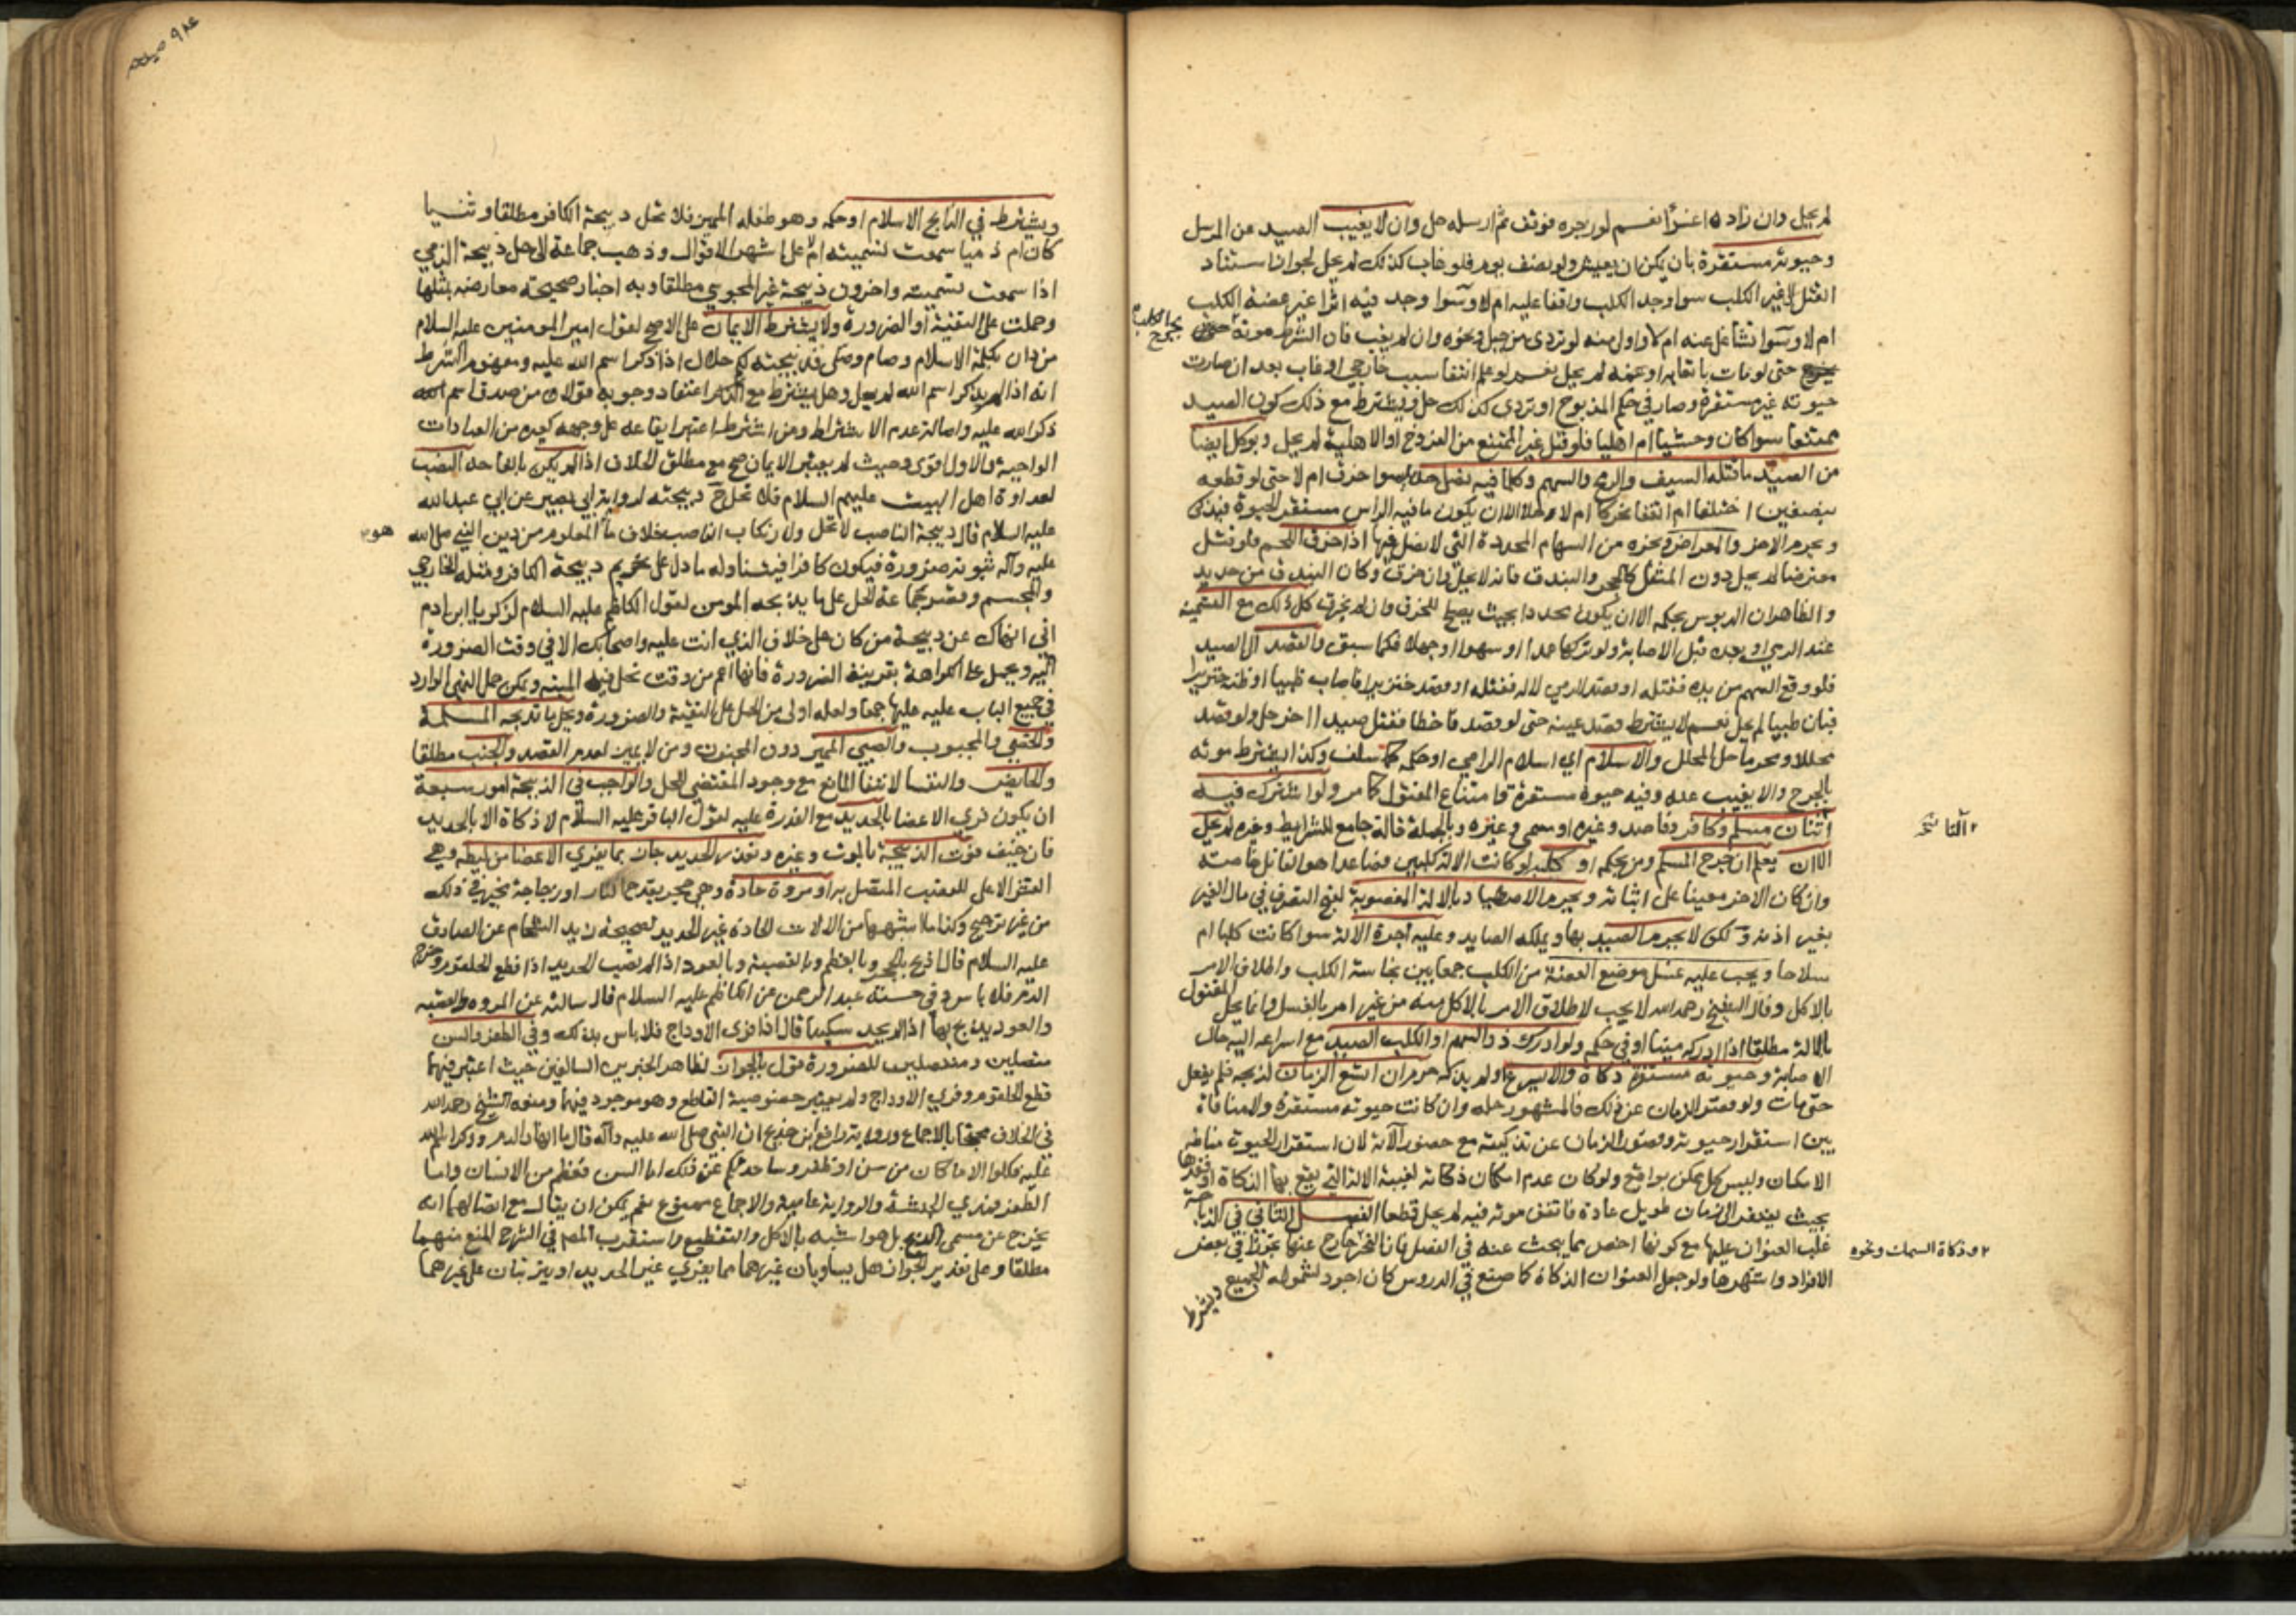 لم يحل وان زاده اغراء نعم لو زجره فوقف ثم ارسله حل وان لا يغيب الصيد عن المرسل
وحيوته مستقرة بان يمكن ان يعيش ولو نصف يوم فلو غاب كذلك لم يحل لجواز استناد
القتل لا غير الكلب سوا وجد الكلب واقفا عليه ام لا وسوا وجد فيه اثرا غير عضة الكلب
ام لا وسوا تشاغل عنه ام لا واولى منه لو تردى من جبل ونحوه وان لم يغب فان الشرط موته
بجرح الكلب
حتى لو مات باتعابه او غمه لم يحل نعم لو علم انتفا سبب خارجي او غاب بعد ان صارت
حيوته غير مستقرة وصار في حكم المذبوح او تردى كذلك حل ويشترط مع ذلك كون الصيد
ممتنعا سوا كان وحشيا ام اهليا فلو قتل غير الممتنع من الفروخ او الاهلية لم يحل ويوكل ايضا
من الصيد ما قتله السيف والرمح والسهم وكلما فيه نصل حديد سوا خرق ام لا حتى لو قطعه
بنصفين اختلفا ام اتفقا تحركا ام لا حلا الا ان يكون ما فيه الراس مستقر الحيوة فيذكى
ويحرم الاخر والمعراض ونحوه من السهام المحددة التي لا نصل فيها اذا خرق اللحم فلو قتل
معترضا لم يحل دون المثقل كالحجر والبندق فانه لا يحل وان خرق وكان البندق من حديد
والظاهر ان الدبوس بحكمه الا ان يكون محددا بحيث يصلح للخرق وان لم يخرق كل ذلك مع التسمية
عند الرمي او بعده قبل الاصابة ولو تركها عمدا او سهوا او جهلا فكما سبق والقصد الى الصيد
فلو وقع السهم من يده فقتله او قصد الرمي لا له فقتله او قصد خنزيرا فاصاب ظبيا او ظنه خنزيرا
فبان ظبيا لم يحل نعم لا يشترط قصد عينه حتى لو قصد فاخطا فقتل صيدا اخر حل ولو قصد
محللا ومحرما حل المحلل والاسلام اي اسلام الرامي او حكمه كما سلف وكذا يشترط موته
بالجرح والا يغيب عنه وفيه حيوة مستقرة وامتناع المقتول كما مر ولو اشترك فيه
اثنان مسلم وكافر وقاصد وغيره او مسمي وغيره وبالجملة فالة جامع للشرايط وغيره لم يحل
الا ان يعلم ان جرح المسلم ومن بحكمه او كلبه لو كانت الالة كلبين فصاعدا هو القاتل خاصة
وان كان الاخر معينا على اثباته ويحرم الاصطياد بالالة المغصوبة لقبح التصرف في مال الغير
بغير اذنه ولكن لا يحرم الصيد بها ويملكه الصايد وعليه اجرة الالة سوا كانت كلبا ام
سلاحا ويجب عليه غسل موضع العضة من الكلب جمعا بين نجاسة الكلب واطلاق الامر
بالاكل وقال الشيخ رحمه الله لا يجب لاطلاق الامر بالاكل منه من غير امر بالغسل وانما يحل المقتول
بالالة مطلقا اذا ادركه ميتا او في حكمه ولو ادرك ذو السهم او الكلب الصيد مع اسراعه اليه حال
الاصابة وحيوته مستقرة ذكاه والا يسرع او لم يذكه حرم ان اتسع الزمان لذبحه فلم يفعل
حتى مات ولو قصر الزمان عن ذلك فالمشهور حله وان كانت حيوته مستقرة ولا منافاة
بين استقرار حيوته وقصور الزمان عن تذكيته مع حضور الآلة لان استقرار الحيوة مناطه
الامكان وليس كل ممكن بواقع ولو كان عدم امكان ذكاته لغيبة الالة التي يقع بها الذكاة او فقدها
بحيث يفتقر الى زمان طويل عادة فاتفق موته فيه لم يحل قطعا الفصل الثاني في الذباحة
غلب العنوان عليها مع كونها اخص مما يبحث عنه في الفصل فان النحر خارج عنها تجوزا في بعض
الافراد واشهرها ولو جعل العنوان الذكاة كما صنع في الدروس كان اجود لشموله الجميع
ويشترط
وذكاة السمك ونحوه
ويشترط في الذابح الاسلام او حكمه وهو طفله المميز فلا تحل ذبيحة الكافر مطلقا وثنيا
كان ام ذميا سمعت تسميته ام لا على اشهر الاقوال وذهب جماعة الى حل ذبيحة الذمي
اذا سمعت تسميته واخرون ذبيحة غير المجوسي مطلقا وبه اخبار صحيحة معارضه بمثلها
وحملت على التقية او الضرورة ولا يشترط الايمان على الاصح لقول امير المومنين عليه السلام
من دان بكلمة الاسلام وصام وصلى فذبيحته لكم حلال اذا ذكر اسم الله عليه ومفهوم الشرط
انه اذا لم يذكر اسم الله لم يحل وهل يشترط مع الذكر اعتقاد وجوبه قولان من صدق اسم الله
ذكر الله عليه واصالة عدم الاشتراط ومن اشترط اعتبر ايقاعه على وجهه كغيره من العبادات
الواجبة والاول اقوى وحيث لم يعتبر الايمان صح مع مطلق الخلاف اذا لم يكن بالغا حد النصب
لعداوة اهل البيت عليهم السلام فلا تحل ح ذبيحته لرواية ابي بصير عن ابي عبد الله
عليه السلام قال ذبيحة الناصب لا تحل ولارتكاب الناصب خلاف ما المعلوم من دين النبي صلى الله
هو
عليه وآله ثبوته ضرورة فيكون كافرا فيتناوله ما دل على تحريم ذبيحة الكافر ومثله الخارجي
والمجسم وقصر جماعة الحل على ما يذبحه المومن لقول الكاظم عليه السلام لزكريا ابن ادم
اني انهاك عن ذبيحة من كان على خلاف الذي انت عليه واصحابك الا في وقت الضرورة
اليه ويحمل على الكراهة بقرينة الضرورة فانها اعم من وقت تحل فيه الميتة ويمكن حمل النهي الوارد
في جميع الباب عليه عليها جمعا ولعله اولى من الحمل على التقية والضرورة ويحل ما تذبحه المسلمة
والخصي والمجبوب والصبي المميز دون المجنون ومن لا يميز لعدم القصد والجنب مطلقا
والحايض والنفسا لانتفا المانع مع وجود المقتضي للحل والواجب في الذبيحة امور سبعة
ان يكون فري الاعضا بالحديد مع القدرة عليه لقول الباقر عليه السلام لا ذكاة الا بالحديد
فان خيف فوت الذبيحة بالموت وغيره وتعذر الحديد جاز بما يفري الاعضا من ليطه وهي
القشر الاعلى للقصب المتصل به او مروة حادة وهي حجر يقدح النار او زجاجة مخير في ذلك
من غير ترجيح وكذا ما اشبهها من الالات الحادة غير الحديد لصحيحة زيد الشحام عن الصادق
عليه السلام قال اذبح بالحجر وبالعظم وبالقصبة وبالعود اذا لم تصب الحديد اذا قطع الحلقوم وخرج
الدم فلا باس وفي حسنة عبد الرحمن عن الكاظم عليه السلام قال سالته عن المروه والقصبه
والعود يذبح بها اذا لم يجد سكينا قال اذا فرى الاوداج فلا باس بذلك وفي الظفر والسن
متصلين ومنفصلين للضرورة قول بالجواز لظاهر الخبرين السالفين حيث اعتبر فيهما
قطع الحلقوم وفري الاوداج ولم يعتبر خصوصية القاطع وهو موجود فيهما ومنعه الشيخ رحمه الله
في الخلاف محتجا بالاجماع ورواية رافع ابن خديج ان النبي صلى الله عليه وآله قال ما انهر الدم وذكر اسم الله
عليه فكلوا الا ما كان من سن او ظفر وساحدثكم عن ذلك اما السن فعظم من الانسان واما
الظفر فمدي الحبشة والرواية عامية والاجماع ممنوع نعم يمكن ان يقال مع اتصالهما انه
يخرج عن مسمى الذبح بل هو اشبه بالاكل والتقطيع واستقرب المصر في الشرح المنع منهما
مطلقا وعلى تقدير الجواز هل يساويان غيرهما مما يفري غير الحديد او يترتبان على غيرهما